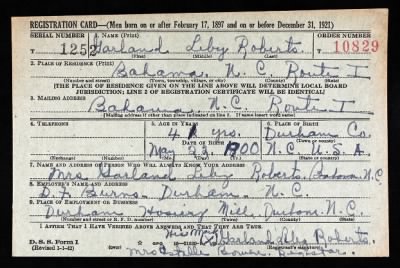 REGISTRATION CARD—(Men born on or after February 17, 1897 and on or before December 31, 1921)
SERIAL NUMBER 1. NAME (Print) ORDER NUMBER
T 1252 Garland Leby Roberts T 10829
(First) (Middle) (Last)
2. PLACE OF RESIDENCE (Print)
Bahama N.C. Route I
(Number and street) (Town, township, village, or city) (County) (State)
[THE PLACE OF RESIDENCE GIVEN ON THE LINE ABOVE WILL DETERMINE LOCAL BOARD
JURISDICTION; LINE 2 OF REGISTRATION CERTIFICATE WILL BE IDENTICAL]
3. MAILING ADDRESS
Bahama, N.C. Route I
[Mailing address if other than place indicated on line 2. If same insert word same]
4. TELEPHONE 5. AGE IN YEARS 6. PLACE OF BIRTH
41 yrs. Durham Co.
DATE OF BIRTH (Town or county)
May 23 1900 N.C. U.S.A.
(Exchange) (Number) (Mo.) (Day) (Yr.) (State or country)
7. NAME AND ADDRESS OF PERSON WHO WILL ALWAYS KNOW YOUR ADDRESS
Mrs Garland Leby Roberts, Bahama N.C.
8. EMPLOYER'S NAME AND ADDRESS
Burns, Durham, N.C.
9. PLACE OF EMPLOYMENT OR BUSINESS
Durham Hosiery Mill, Durham N.C.
(Number and street or R. F. D. number) (Town) (County) (State)
I AFFIRM THAT I HAVE VERIFIED ABOVE ANSWERS AND THAT THEY ARE TRUE.
His Mark
D. S. S. Form 1 X Garland Leby Roberts
(Revised 1-1-42) (over) (Registrant's signature)
Mrs Registrar